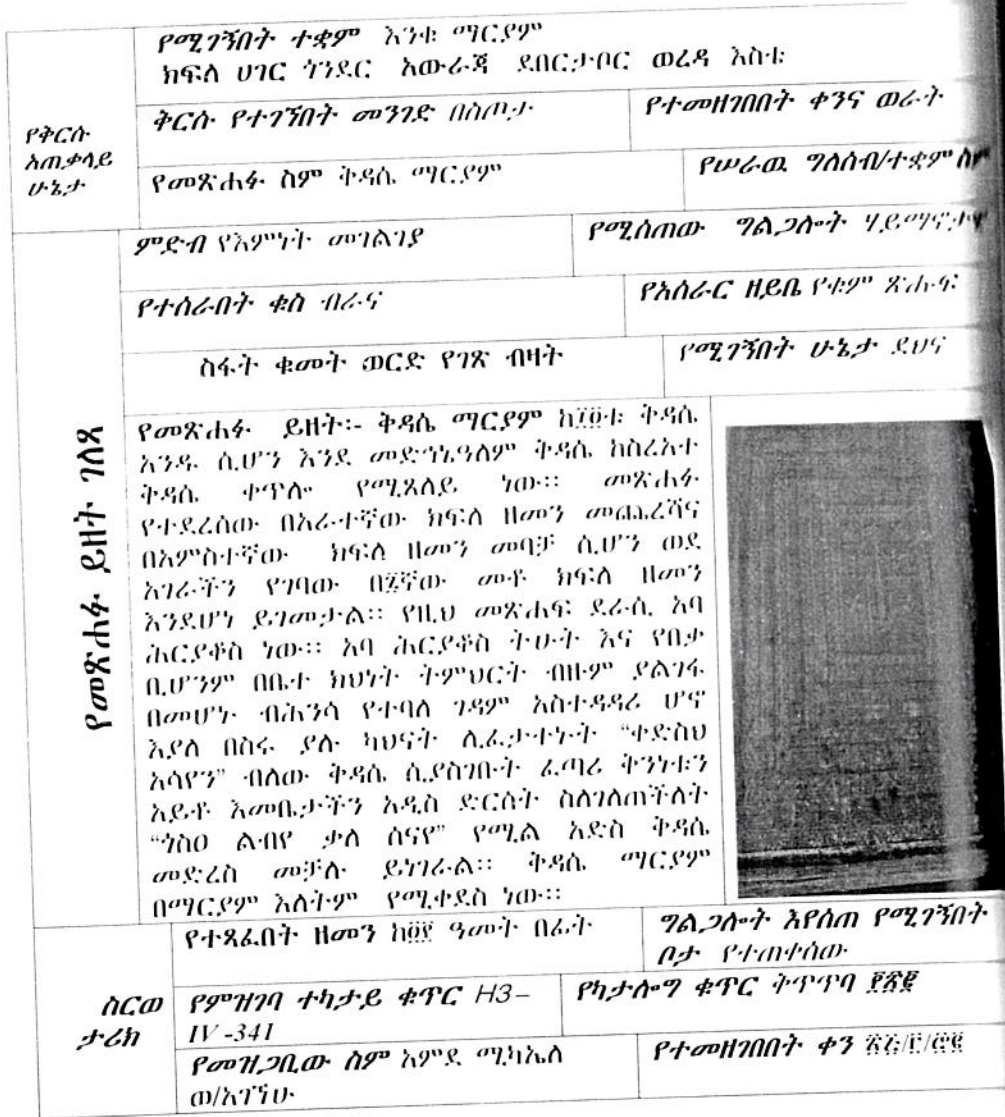 የሚገኝበት ተቋም እንቁ ማርያም
ክፍለ ሀገር ጎንደር አውራጃ ደበርታቦር ወረዳ እስቴ
የቅርሱ
አጠቃላይ
ሁኔታ
ቅርሱ የተገኘበት መንገድ በስጦታ
የተመዘገበበት ቀንና ወራት
የመጽሐፉ ስም ቅዳሴ ማርያም
የሠራዉ ግለሰብ/ተቋም ስም
የመጽሐፉ ይዘት ገለጻ
ምድብ የእምነት መገልገያ
የሚሰጠው ግልጋሎት
የተሰራበት ቁስ ብራና
የአሰራር ዘይቤ የቁም ጽሑፍ
ስፋት ቁመት ወርድ የገጽ ብዛት
የሚገኝበት ሁኔታ ደህና
የመጽሐፉ ይዘት፡- ቅዳሴ ማርያም ከ፲፬ቱ ቅዳሴ
አንዱ ሲሆን እንደ መድኀኔዓለም ቅዳሴ ከስረአተ
ቅዳሴ ቀጥሎ የሚጸለይ ነው፡፡ መጽሐፉ
የተደረሰው በአራተኛው ክፍለ ዘመን መጨረሻና
በአምስተኛው ክፍለ ዘመን መባቻ ሲሆን ወደ
አገራችን የገባው በ፮ኛው መቶ ክፍለ ዘመን
እንደሆነ ይገመታል፡፡ የዚህ መጽሐፍ ደራሲ አባ
ሕርያቆስ ነው፡፡ አባ ሕርያቆስ ትሁት እና የበታ
ቢሆንም በቤተ ክህነት ትምህርት ብዙም ያልገፋ
በመሆኑ ብሕንሳ የተባለ ገዳም አስተዳዳሪ ሆኖ
እያለ በስሩ ያሉ ካህናት ሊፈታተኑት “ቀድስህ
አሳየን” ብለው ቅዳሴ ሲያስገቡት ፈጣሪ ቅንነቱን
አይቶ እመቤታችን አዲስ ድርሰት ስለገለጠችለት
“ጎስዐ ልብየ ቃለ ሰናየ” የሚል አድስ ቅዳሴ
መድረስ መቻሉ ይነገራል፡፡ ቅዳሴ ማርያም
በማርያም እለትም የሚቀደስ ነው፡፡
ስርወ
ታሪክ
የተጻፈበት ዘመን ዓመት በፊት
ግልጋሎት እየሰጠ የሚገኝበት
ቦታ የተጠቀሰው
የምዝገባ ተካታይ ቁጥር H3–
IV -341
የካታሎግ ቁጥር ቅጥጥባ
የመዝጋቢው ስም አምደ ሚካኤለ
ወ/አገኘሁ
የተመዘገበበት ቀን